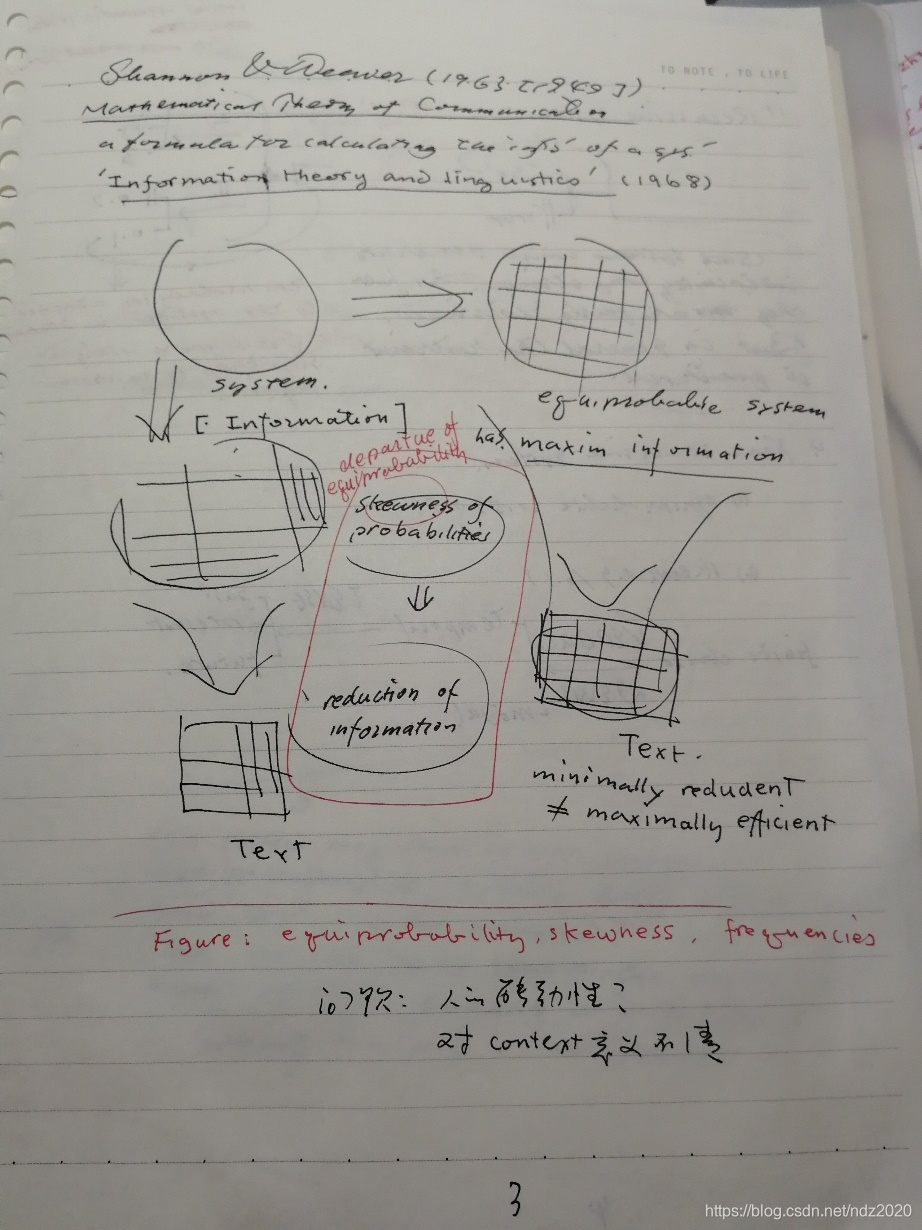 TO NOTE , TO LIFE
Shannon & Weaver (1963 [1949])
Mathematical Theory of Communication
a formula for calculating the info' of a sys'
'Information theory and linguistics' (1968)
system.
equiprobable system
[· Information]
has maxim information
departue of
equiprobability
skewness of
probabilities
reduction of
information
Text.
minimally redudent
≠ maximally efficient
Text
Figure: equiprobability, skewness, frequencies
人的 动性?
对 context 意义不清
3
https://blog.csdn.net/ndz2020